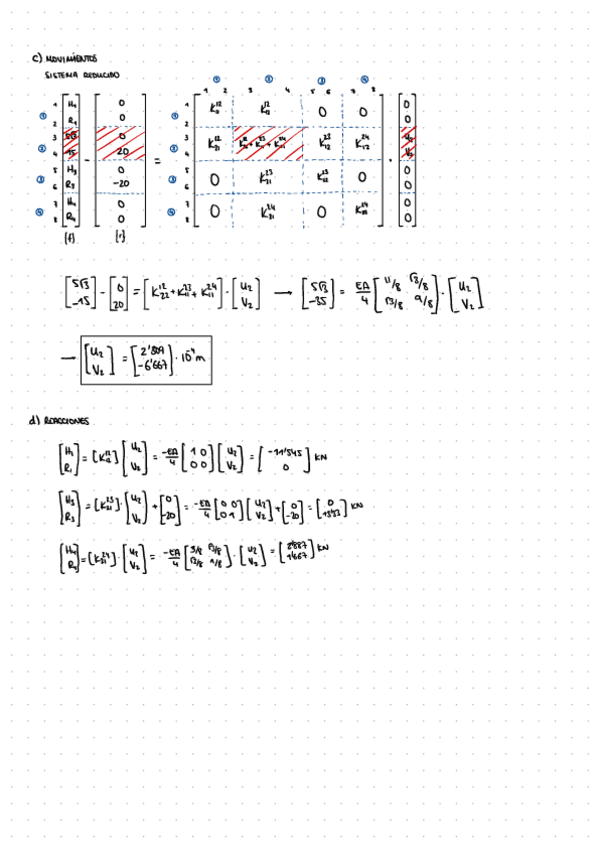 c) MOVIMIENTOS
SISTEMA REDUCIDO
① ② ③ ④
1 2 3 4 5 6 7 8
① 1 H₁ 0 K₁₁¹² K₁₂¹² 0 0 0
2 R₁ 0 0
② 3 5√3 0 K₂₁¹² K₂₂¹²+K₁₁²³+K₁₁²⁴ K₁₂²³ K₁₂²⁴ U₂
4 -15 20 = V₂
③ 5 H₃ 0 0 K₂₁²³ K₂₂²³ 0 0
6 R₃ -20 0
④ 7 H₄ 0 0 K₂₁²⁴ 0 K₂₂²⁴ 0
8 R₄ 0 0
{f} {r}
[5√3 -15] - [0 20] = [K₂₂¹²+K₁₁²³+K₁₁²⁴]·[U₂ V₂] → [5√3 -35] = EA/4 [11/8 √3/8 √3/8 9/8]·[U₂ V₂]
→ [U₂ V₂] = [2'809 -6'667]·10⁻⁴ m
d) REACCIONES
[H₁ R₁] = [K₁₂¹²] [U₂ V₂] = -EA/4 [1 0 0 0] [U₂ V₂] = [-11'545 0] KN
[H₃ R₃] = [K₂₁²³]·[U₂ V₂] + [0 -20] = -EA/4 [0 0 0 1] [U₂ V₂] + [0 -20] = [0 13'33] KN
[H₄ R₄] = [K₂₁²⁴]·[U₂ V₂] = -EA/4 [3/8 √3/8 √3/8 1/8]·[U₂ V₂] = [2'887 1'667] KN